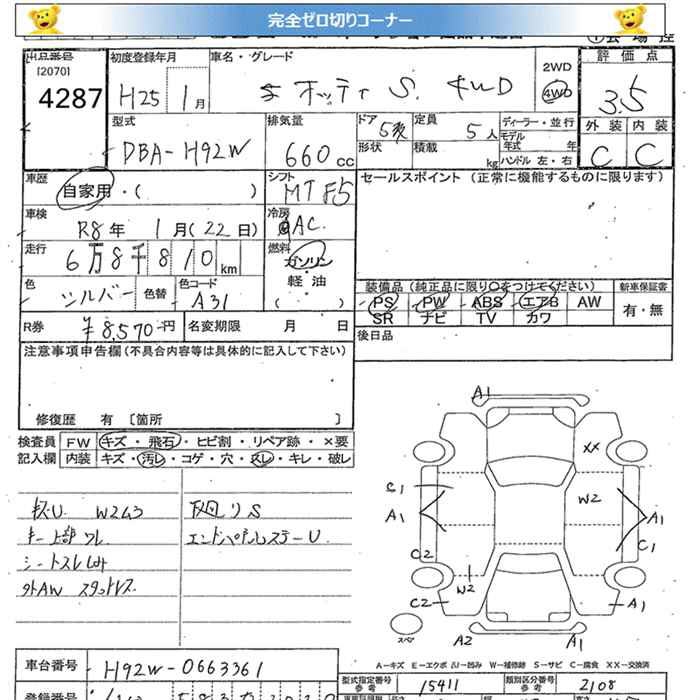 完全ゼロ切りコーナー
出品番号 初度登録年月 車名・グレード 評価点
(2070)
4287 H25 1月 オッティ S 4WD 2WD 4WD 3.5
型式 排気量 ドア 定員 ディーラー・並行 外装 内装
DBA-H92W 660cc 5 5人 モデル年式 年 C C
形状 積載 kg ハンドル 左・右
車歴 自家用・( ) シフト MT F5 セールスポイント (正常に機能するものに限ります)
車検 R8年 1月(22日) 冷房 AC
走行 6万8千810km 燃料 ガソリン・軽油 ( )
色 シルバー 色替 色コード A31
装備品 (純正品に限り○をつけてください) 新車保証書
PS PW ABS エアB AW 有・無
SR ナビ TV カワ
R券 ¥8,570円 名変期限 月 日
後日品
注意事項申告欄(不具合内容等は具体的に記入して下さい)
修復歴 有 〔箇所 〕
検査員 FW キズ・飛石・ヒビ割・リペア跡・×要
記入欄 内装 キズ・汚レ・コゲ・穴・スレ・キレ・破レ
W2 G3 下回りS
キー上部ワレ エンドパネルステーU
シートスレ
外AW スタットレス
A1
XX
C1 W2
A1 A1
C2 C1
W2
C2 A1
スペア A2 A1
A-キズ E-エクボ U-凹み W-補修跡 S-サビ C-腐食 XX-交換済
車台番号 H92W-0663361
型式指定番号 参考 15411 類別区分番号 参考 2108
登録番号